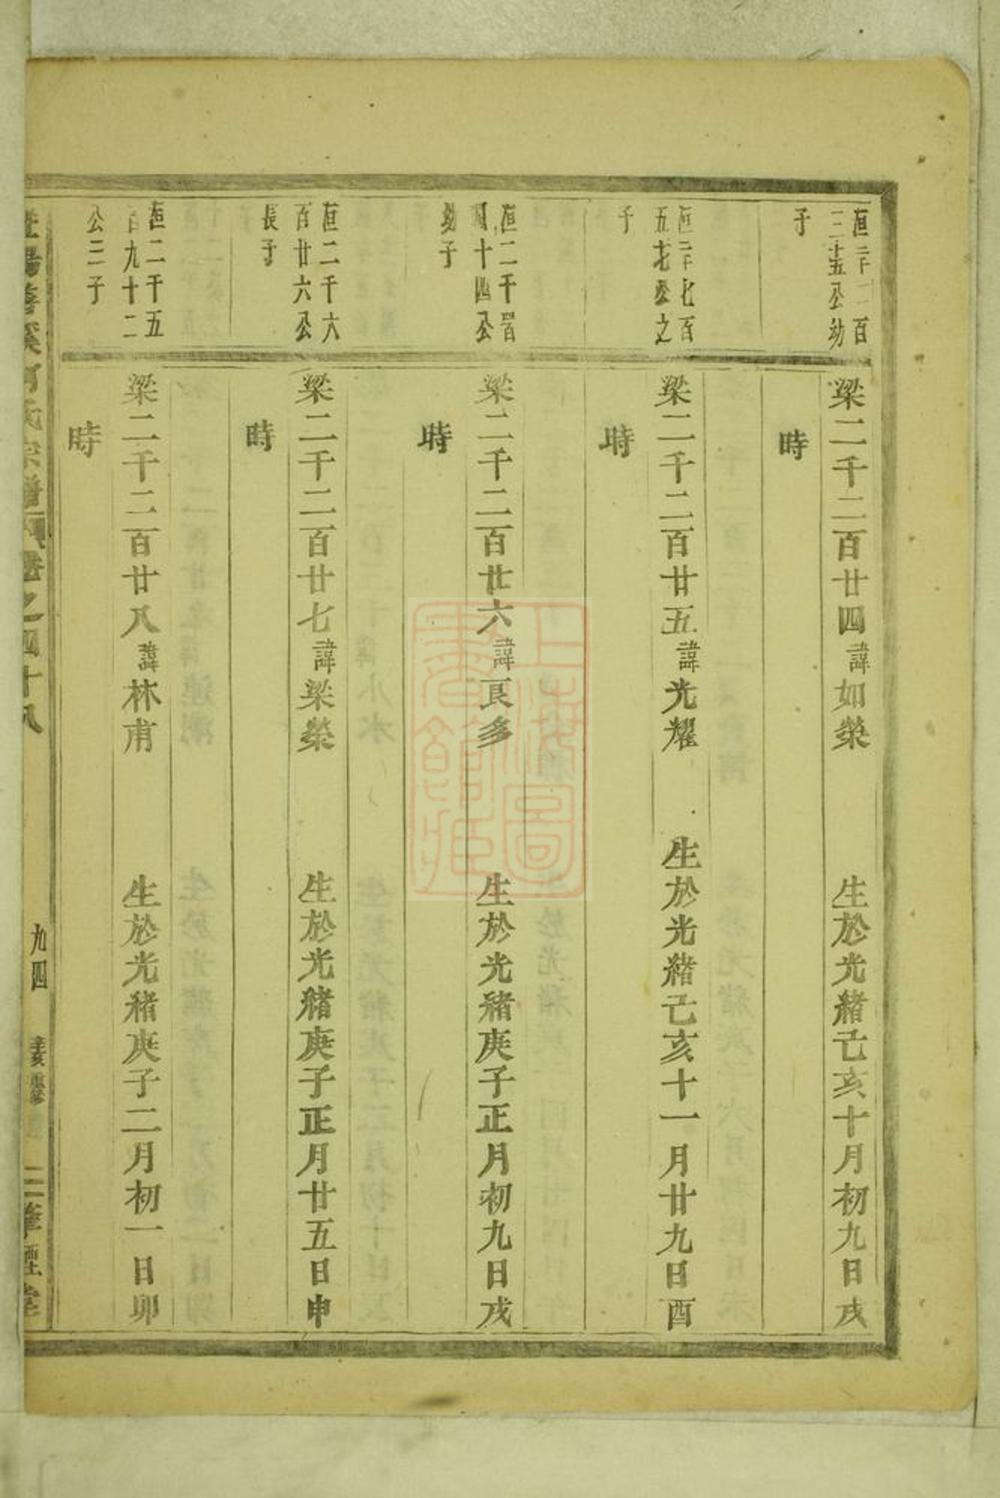 梁二千二百廿四諱如榮 生於光緒己亥十月初九日戌
時
梁二千二百廿五諱光耀 生於光緒己亥十一月廿九日酉
時
梁二千二百廿六諱良多 生於光緒庚子正月初九日戌
時
桓二千六
百廿六公
長子
梁二千二百廿七諱梁榮 生於光緒庚子正月廿五日申
時
桓二千五
百九十二
公三子
梁二千二百廿八諱林甫 生於光緒庚子二月初一日卯
時
氏宗譜 卷之四十八 九四